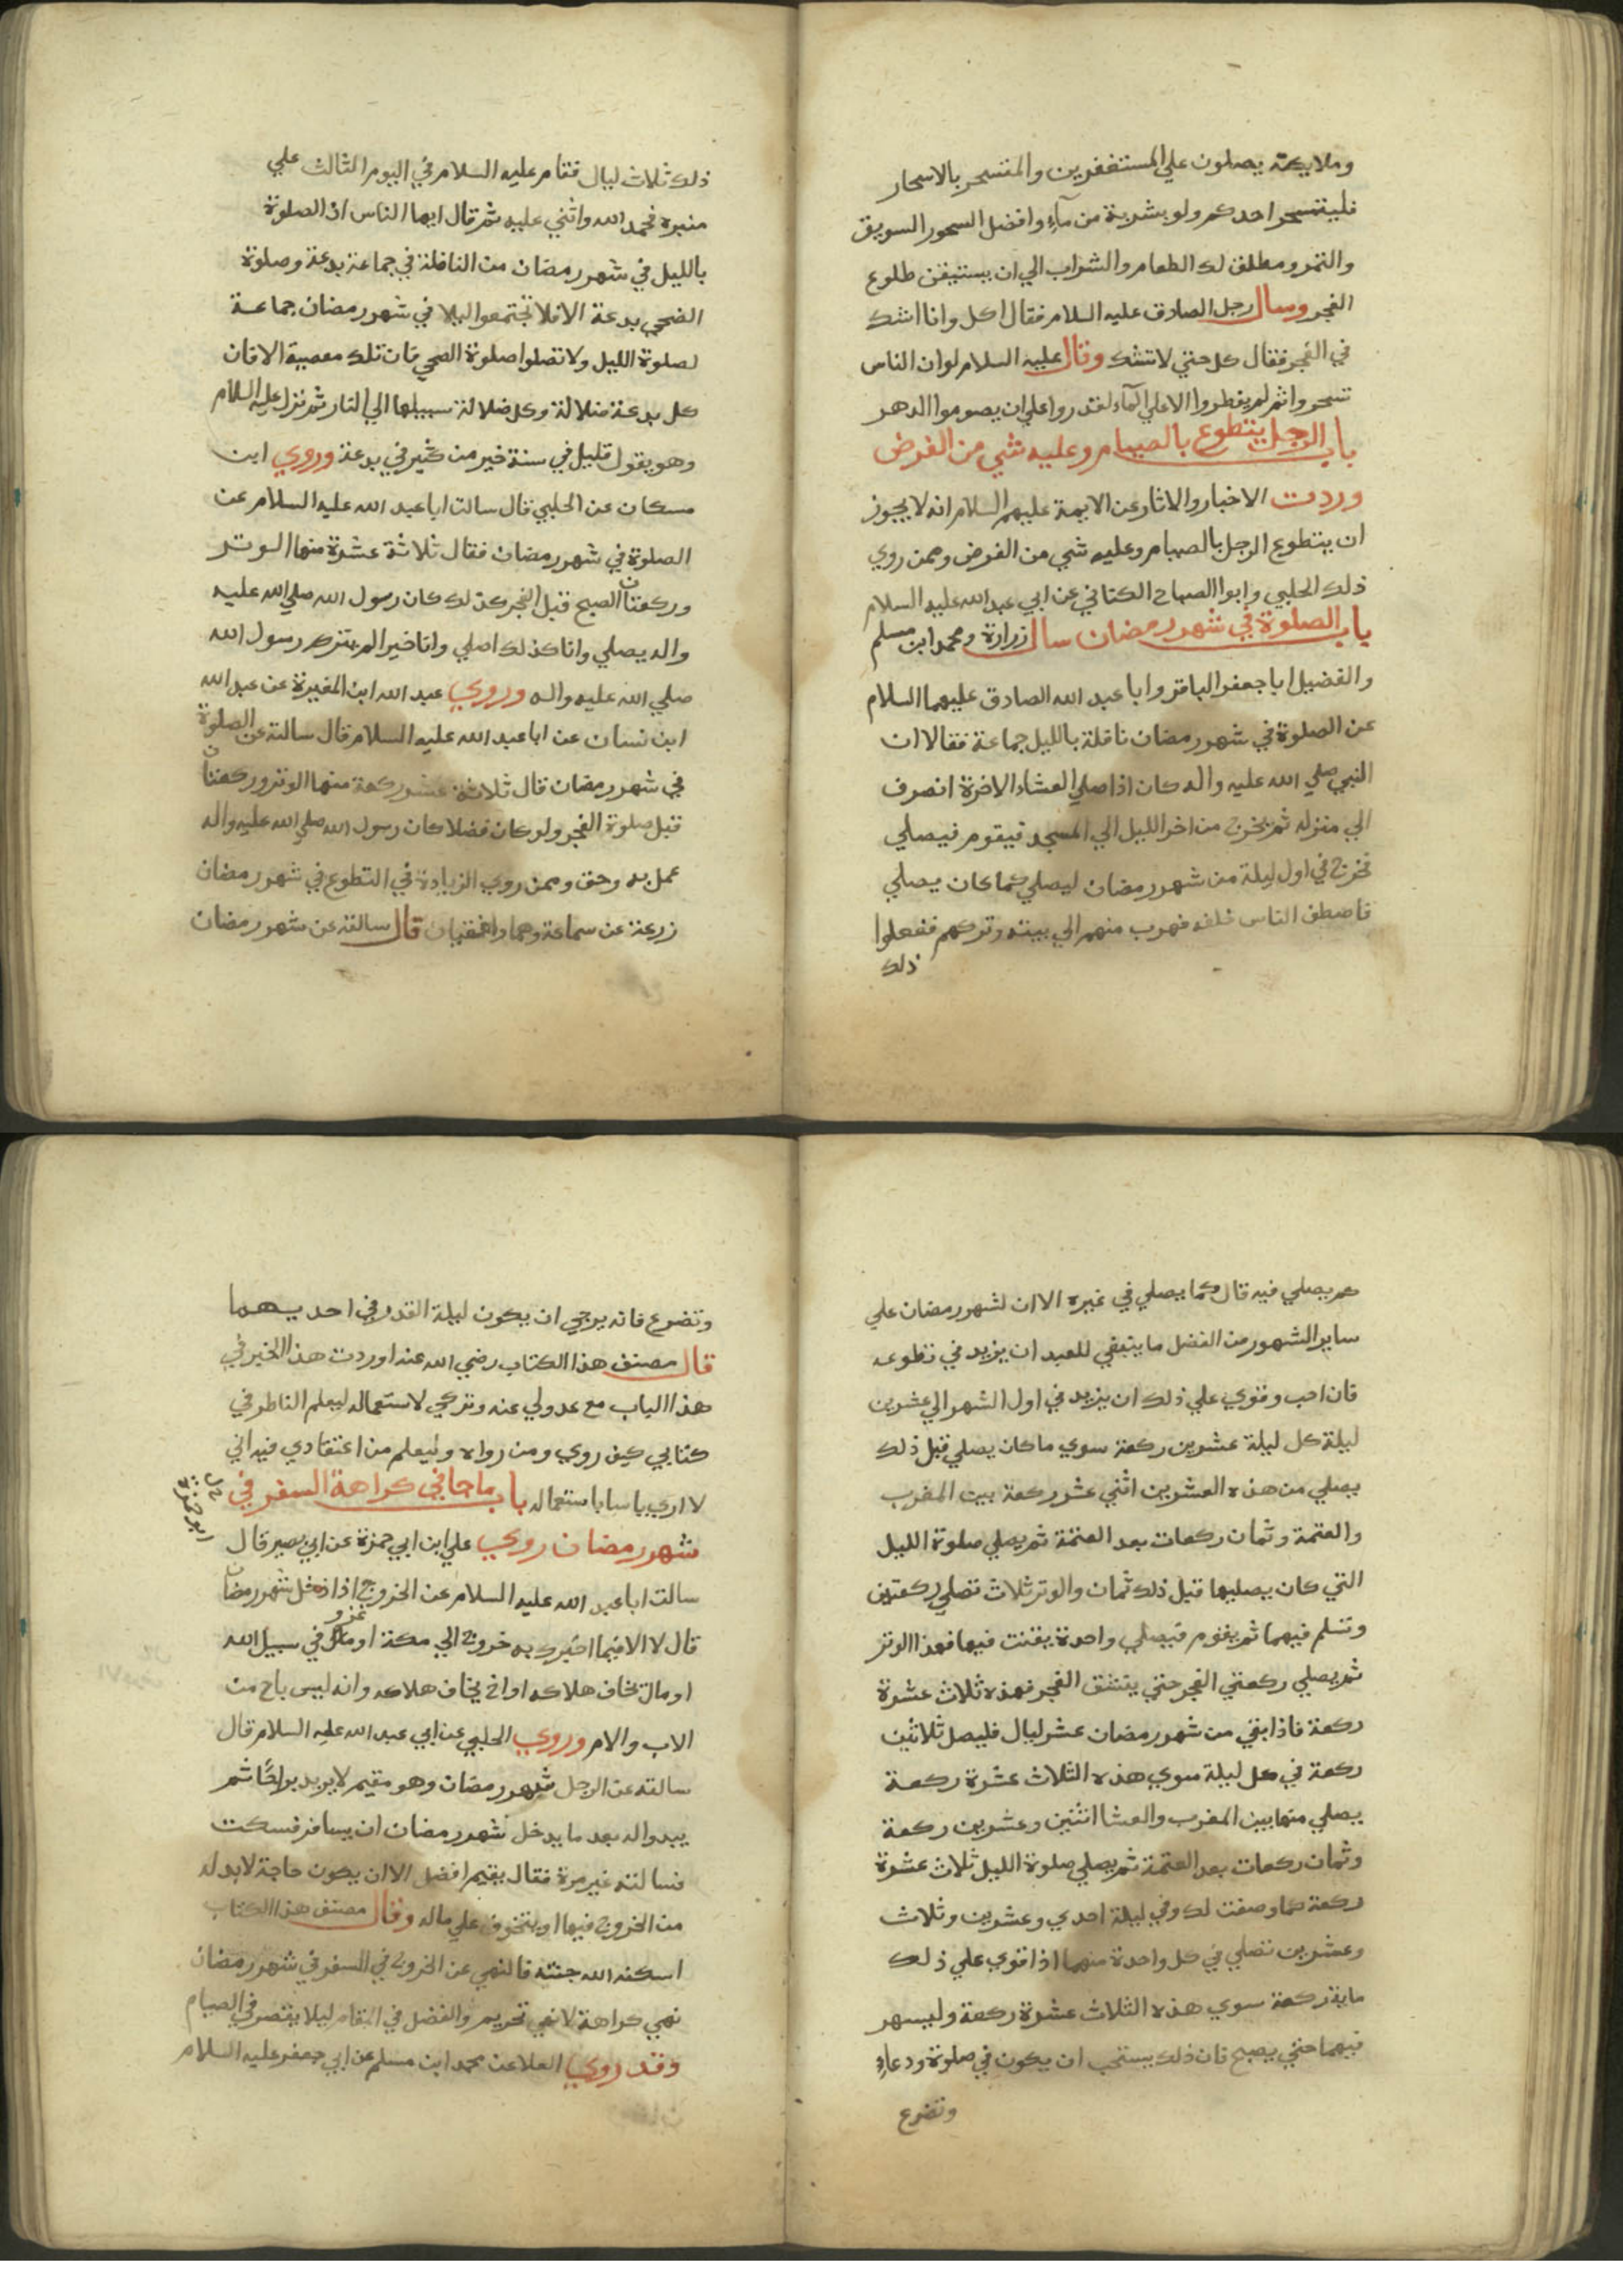 وملايكته يصلون علي المستغفرين والمتسحر بالاسحار
فليتسحر احدكم ولو بشربة من مآء وافضل السحور السويق
والتمر ومطلق لك الطعام والشراب الي ان يستيقن طلوع
الفجر وسال رجل الصادق عليه السلام فقال اكل وانا اشك
في الفجر فقال كل حتي لا تشك وقال عليه السلام لو ان الناس
تسحروا ثم لم يفطروا الا علي المآء لقدروا علي ان يصوموا الدهر
باب الرجل يتطوع بالصيام وعليه شي من الفرض
وردت الاخبار والاثار عن الايمة عليهم السلام انه لا يجوز
ان يتطوع الرجل بالصيام وعليه شي من الفرض وممن روي
ذلك الحلبي وابوا الصباح الكناني عن ابي عبد الله عليه السلام
باب الصلوة في شهر رمضان سال زرارة ومحمد ابن مسلم
والفضيل ابا جعفر الباقر وابا عبد الله الصادق عليهما السلام
عن الصلوة في شهر رمضان نافلة بالليل جماعة فقالا ان
النبي صلي الله عليه واله كان اذا صلي العشاء الاخرة انصرف
الي منزله ثم يخرج من اخر الليل الي المسجد فيقوم فيصلي
فخرج في اول ليلة من شهر رمضان ليصلي كما كان يصلي
فاصطف الناس خلفه فهرب منهم الي بيته وتركهم ففعلوا
ذلك
ذلك ثلاث ليال فقام عليه السلام في اليوم الثالث علي
منبره فحمد الله واثني عليه ثم قال ايها الناس ان الصلوة
بالليل في شهر رمضان من النافلة في جماعة بدعة وصلوة
الضحي بدعة الا فلا تجتمعوا ليلا في شهر رمضان جماعة
لصلوة الليل ولا تصلوا صلوة الضحي فان تلك معصية الا فان
كل بدعة ضلالة وكل ضلالة سبيلها الي النار ثم نزل عليه السلام
وهو يقول قليل في سنة خير من كثير في بدعة وروي ابن
مسكان عن الحلبي قال سالت ابا عبد الله عليه السلام عن
الصلوة في شهر رمضان فقال ثلاثة عشرة منها الوتر
وركعتان الصبح قبل الفجر كذلك كان رسول الله صلي الله عليه
واله يصلي وانا كذلك اصلي وانا خيرا لم يتركه رسول الله
صلي الله عليه واله وروي عبد الله ابن المغيرة عن عبد الله
ابن سنان عن ابا عبد الله عليه السلام قال سالته عن الصلوة
في شهر رمضان قال ثلاثة عشر ركعة منها الوتر وركعتان
قبل صلوة الفجر ولو كان فضلا كان رسول الله صلي الله عليه واله
عمل به وحق وممن روي الزيادة في التطوع في شهر رمضان
زرعة عن سماعة وهما واقفيان قال سالته عن شهر رمضان
كم يصلي فيه قال كما يصلي في غيره الا ان لشهر رمضان علي
ساير الشهور من الفضل ما ينبغي للعبد ان يزيد في تطوعه
فان احب وقوي علي ذلك ان يزيد في اول الشهر الي عشرين
ليلة كل ليلة عشرين ركعة سوي ما كان يصلي قبل ذلك
يصلي من هذه العشرين اثني عشر ركعة بين المغرب
والعتمة وثمان ركعات بعد العتمة ثم يصلي صلوة الليل
التي كان يصليها قبل ذلك ثمان والوتر ثلاث تصلي ركعتين
وتسلم فيهما ثم يقوم فيصلي واحدة يقنت فيها فهذا الوتر
ثم يصلي ركعتي الفجر حتي ينشق الفجر فهذه ثلاث عشرة
ركعة فاذا بقي من شهر رمضان عشر ليال فليصل ثلاثين
ركعة في كل ليلة سوي هذه الثلاث عشرة ركعة
يصلي منها بين المغرب والعشا اثنين وعشرين ركعة
وثمان ركعات بعد العتمة ثم يصلي صلوة الليل ثلاث عشرة
ركعة كما وصفت لك وفي ليلة احدي وعشرين وثلاث
وعشرين تصلي في كل واحدة منهما اذا قوي علي ذلك
ماية ركعة سوي هذه الثلاث عشرة ركعة وليسهر
فيهما حتي يصبح فان ذلك يستحب ان يكون في صلوة ودعاء
وتضرع
وتضرع فانه يرجي ان يكون ليلة القدر في احديهما
قال مصنف هذا الكتاب رضي الله عنه اوردت هذا الخبر في
هذا الباب مع عدولي عنه وتركي لاستعماله ليعلم الناظر في
كتابي كيف روي ومن رواه وليعلم من اعتقادي فيه اني
لا اري باسا باستعماله باب ما جا في كراهة السفر في
شهر رمضان روي علي ابن ابي حمزة عن ابي بصير قال
ابو حمزة
سالت ابا عبد الله عليه السلام عن الخروج اذا دخل شهر رمضان
قال لا الا فيما اخبرك به خروج الي مكة او غزو في سبيل الله
او مال تخاف هلاكه او اخ تخاف هلاكه وانه ليس باح من
الاب والام وروي الحلبي عن ابي عبد الله عليه السلام قال
سالته عن الرجل شهر رمضان وهو مقيم لا يريد براحًا ثم
يبدوا له بعد ما يدخل شهر رمضان ان يسافر فسكت
فسالته غير مرة فقال يقيم افضل الا ان يكون حاجة لا بد له
من الخروج فيها او يتخوف علي ماله وقال مصنف هذا الكتاب
اسكنه الله جنته فالنهي عن الخروج في السفر في شهر رمضان
نهي كراهة لا نهي تحريم والفضل في المقام ليلا يقتصر في الصيام
وقد روي العلا عن محمد ابن مسلم عن ابي جعفر عليه السلام